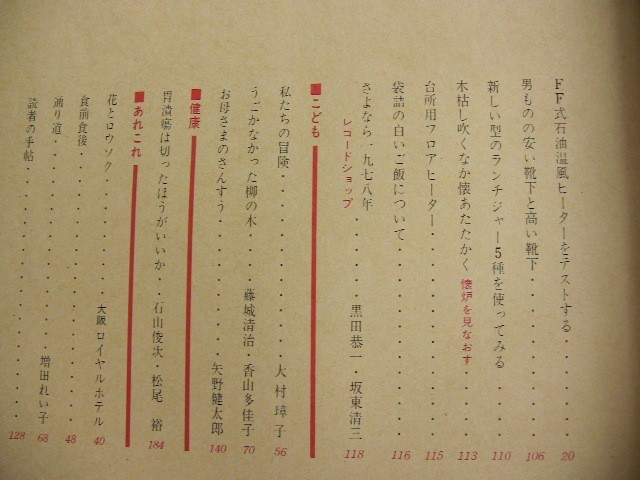 FF式石油温風ヒーターをテストする・・・・・・20
男ものの安い靴下と高い靴下・・・・・・・・・106
新しい型のランチジャー5種を使ってみる・・・・110
木枯し吹くなか懐あたたかく 懐炉を見なおす・・・113
台所用フロアヒーター・・・・・・・・・・・・115
袋詰の白いご飯について・・・・・・・・・・・116
さよなら一九七八年・・・・・黒田恭一・坂東清三 118
レコードショップ
■こども
私たちの冒険・・・・・・・・・・・大村璋子 56
うごかなかった柳の木・・・・藤城清治・香山多佳子 70
お母さまのさんすう・・・・・・・・矢野健太郎 140
■健康
胃潰瘍は切ったほうがいいか・・石山俊次・松尾 裕 184
■あれこれ
花とロウソク・・・・・・・・大阪ロイヤルホテル 40
食前食後・・・・・・・・・・・・・・・・・48
通り道・・・・・・・・・・・・・・増田れい子 68
読者の手帖・・・・・・・・・・・・・・・・128